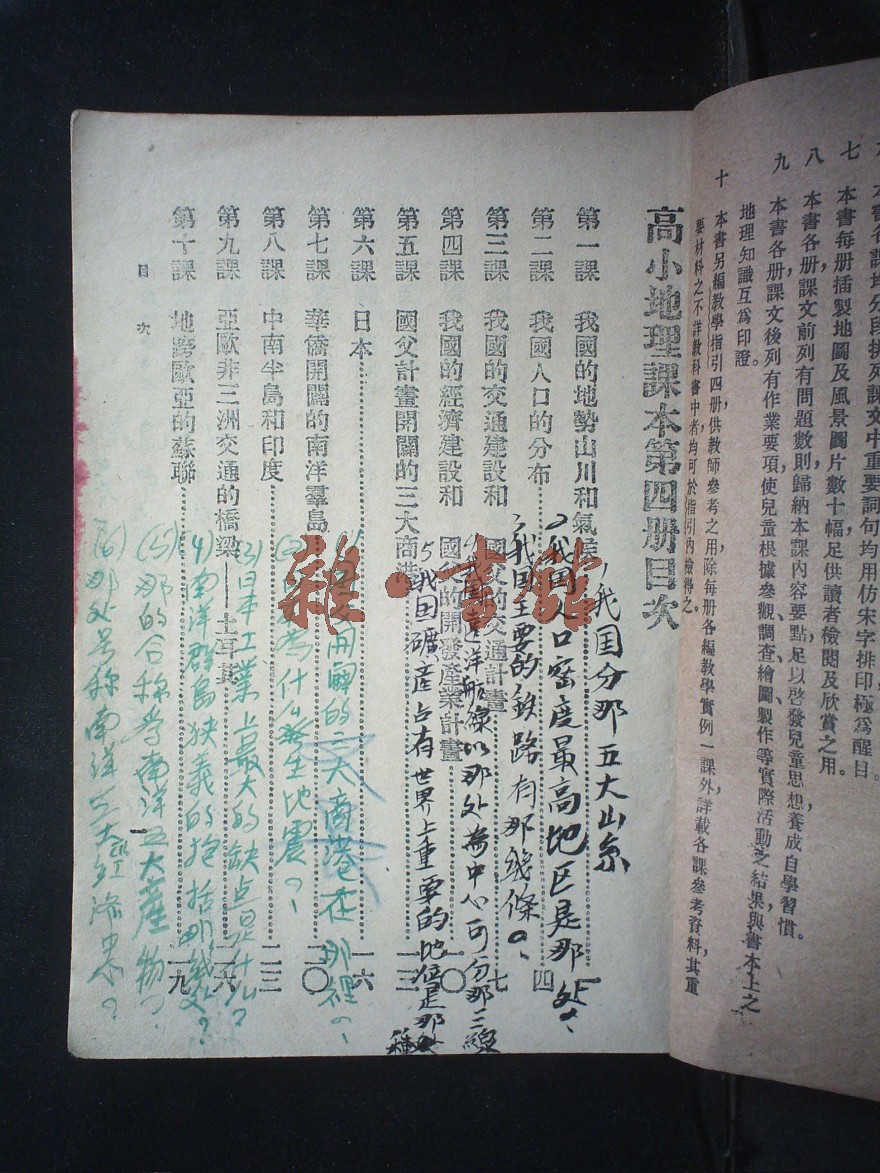 本書各課均分段排列課文中重要詞句均用仿宋字排印極爲醒目。
七 本書每册插製地圖及風景圖片數十幅足供讀者檢閱及欣賞之用。
八 本書各册課文前列有問題數則歸納本課內容要點足以啓發兒童思想養成自學習慣。
九 本書各册課文後列有作業要項使兒童根據參觀、調查、繪圖、製作等實際活動之結果與書本上之
地理知識互爲印證。
十 本書另編教學指引四册供教師參考之用除每册各編教學實例一課外詳載各課參考資料，其重
要材料之不詳教科書中者均可於指引內檢得之。
高小地理課本第四册目次
第一課 我國的地勢山川和氣候 一
第二課 我國人口的分布 四
第三課 我國的交通建設和 國父的交通計畫 七
第四課 我國的經濟建設和 國父的開發產業計畫 一〇
第五課 國父計畫開闢的三大商港 一三
第六課 日本 一六
第七課 華僑開闢的南洋羣島 二〇
第八課 中南半島和印度 二三
第九課 亞歐非三洲交通的橋梁——土耳其 二六
第十課 地跨歐亞的蘇聯 二九
目次
我国分那五大山系
我国人口密度最高地区是那处
我国主要的鉄路有那幾條
遠洋航線以那处為中心可分那三線
5 我国礦產占有世界上重要的地位是那幾種
開闢的三大商港在那裡
為什么發生地震
(3) 日本工業上最大的缺点是什么?
4) 南洋群島狭義的抱括那幾处?
(5) 那的合称為南洋五大產物?
(6) 那处号称南洋三大
雜·書館